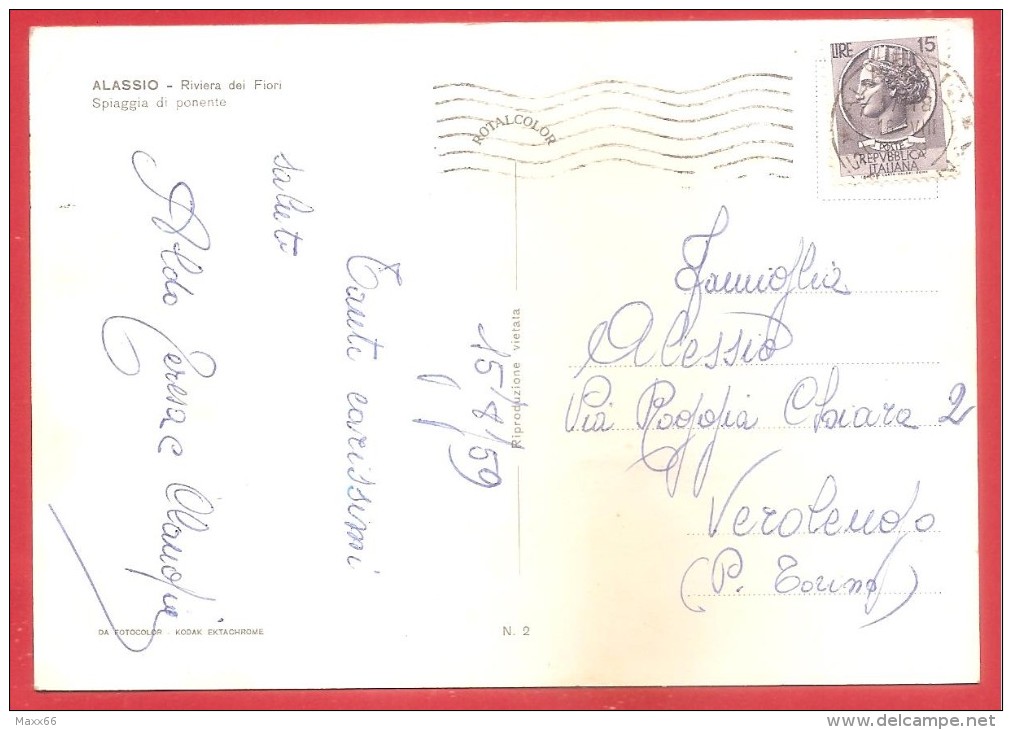 ALASSIO - Riviera dei Fiori
Spiaggia di ponente
ROTALCOLOR
LIRE 15
POSTE
REPVBBLICA
ITALIANA
15/8/59
Tanti carissimi
saluti
Aldo Teresa e
Riproduzione vietata
Famiglia
Alessio
Via Poggia Chiara 2
Verolendo
(P. Torino)
DA FOTOCOLOR - KODAK EKTACHROME
N. 2
Maxx66
delcampe.net